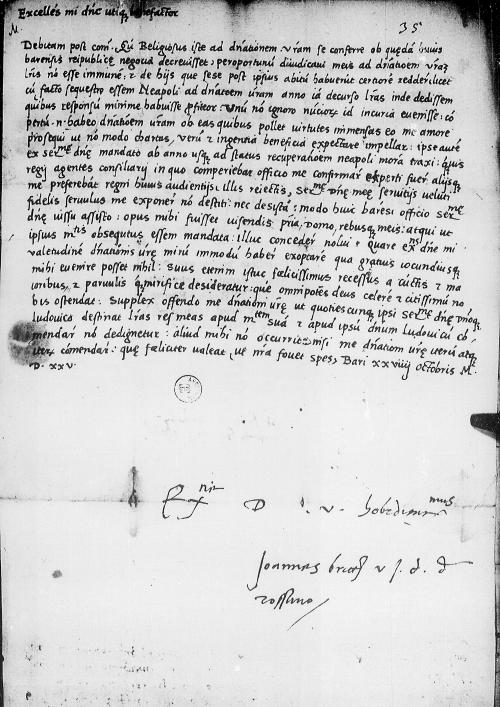 Excellēs mi dn̄e utiq, benefactor
35
Debitam post com̄. Cū Religiosus iste ad dn̄ationem vram se conferre ob quedā huius
barensis reipublice negocia decrevisset: peroportunū diiudicavi meis ad dn̄ationē vraꝫ
lr̄is nō esse immunē: et de hijs que sese post ipsius abitū habuerint certiorē reddere. licet
cū facto sequestro essem Neapoli ad dn̄ationē vram anno iā decurso lr̄as inde dedissem
quibus responsū minime habuisse
vnū nō ignoro nūcioꝝ id incuria evenisse: cō
pertū. n. habeo dn̄ationem vram ob eas quibus pollet virtutes immensas eo me amore
prosequi ut nō modo charitas, verū et ingentia beneficia expectare impellar: ipse aut
ex serme dn̄e mandato ab anno usq, ad status recuperationem neapoli morā traxi:
regij agentes consiliarij in quo comperiebar officio me confirmar experti fuer
me preferebāt regni huius audientijs: illis reiectis, serme dn̄e mee servitijs veluti
fidelis servulus me exponer nō destiti: nec desistā: modo huic baresi officio serme
dn̄e iussu assisto: opus mihi fuisset visendis pria, domo, rebusq, meis: atqui ut
ipsius mtis obsequutus essem mandata: illuc conceder nolui: Quare exns dn̄e mi
valetudinē dn̄ationis vrē mirū immodū haber exoptare qua gratius iocundiusq,
mihi evenire posset nihil: suus etenim istuc felicissimus recessus a cūctis et ma
ioribus, et parvulis q, mirifice desideratur: quē omnipotēs deus celerē et cutissimū no
bis ostendat: Supplex offendo me dn̄ationi vrē ut quotiescunq, ipsi serme dn̄e
ludovica destinat lr̄as res meas apud mtem suā et apud ipsū dn̄um Ludovicū cō
mendar nō dedignetur: aliud mihi nō occurrit nisi me dn̄ationi vrē iterū atq,
iterū comendar: que feliciter valeat, ut nr̄a fovet spes, Bari xxviiij octobris M.
D. xxv.
D. v.
Joannes
v. J. d. d
rossano